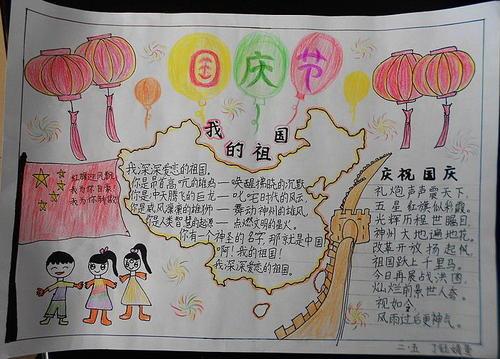 国庆节
我的祖国
红旗迎风飘
我为你自豪
我为你
我深深爱恋的祖国。
你是昂首高吭的雄鸡——唤醒拂晓的沉默
你是冲天腾飞的巨龙——叱咤时代的风云
你是威风凛凛的雄狮——舞动神州的雄风
你是人类智慧的起源——点燃文明的星火。
你有一个神圣的名字,那就是中国
啊!我的祖国!
我深深爱恋的祖国。
庆祝国庆
礼炮声声震天下,
五星红旗似彩霞。
光辉历程世瞩目,
神州大地遍地花。
改革开放扬起帆,
祖国跃上千里马。
今日再展战法图,
灿烂前景世人夸。
视如令
风雨过后更神气。
二·五